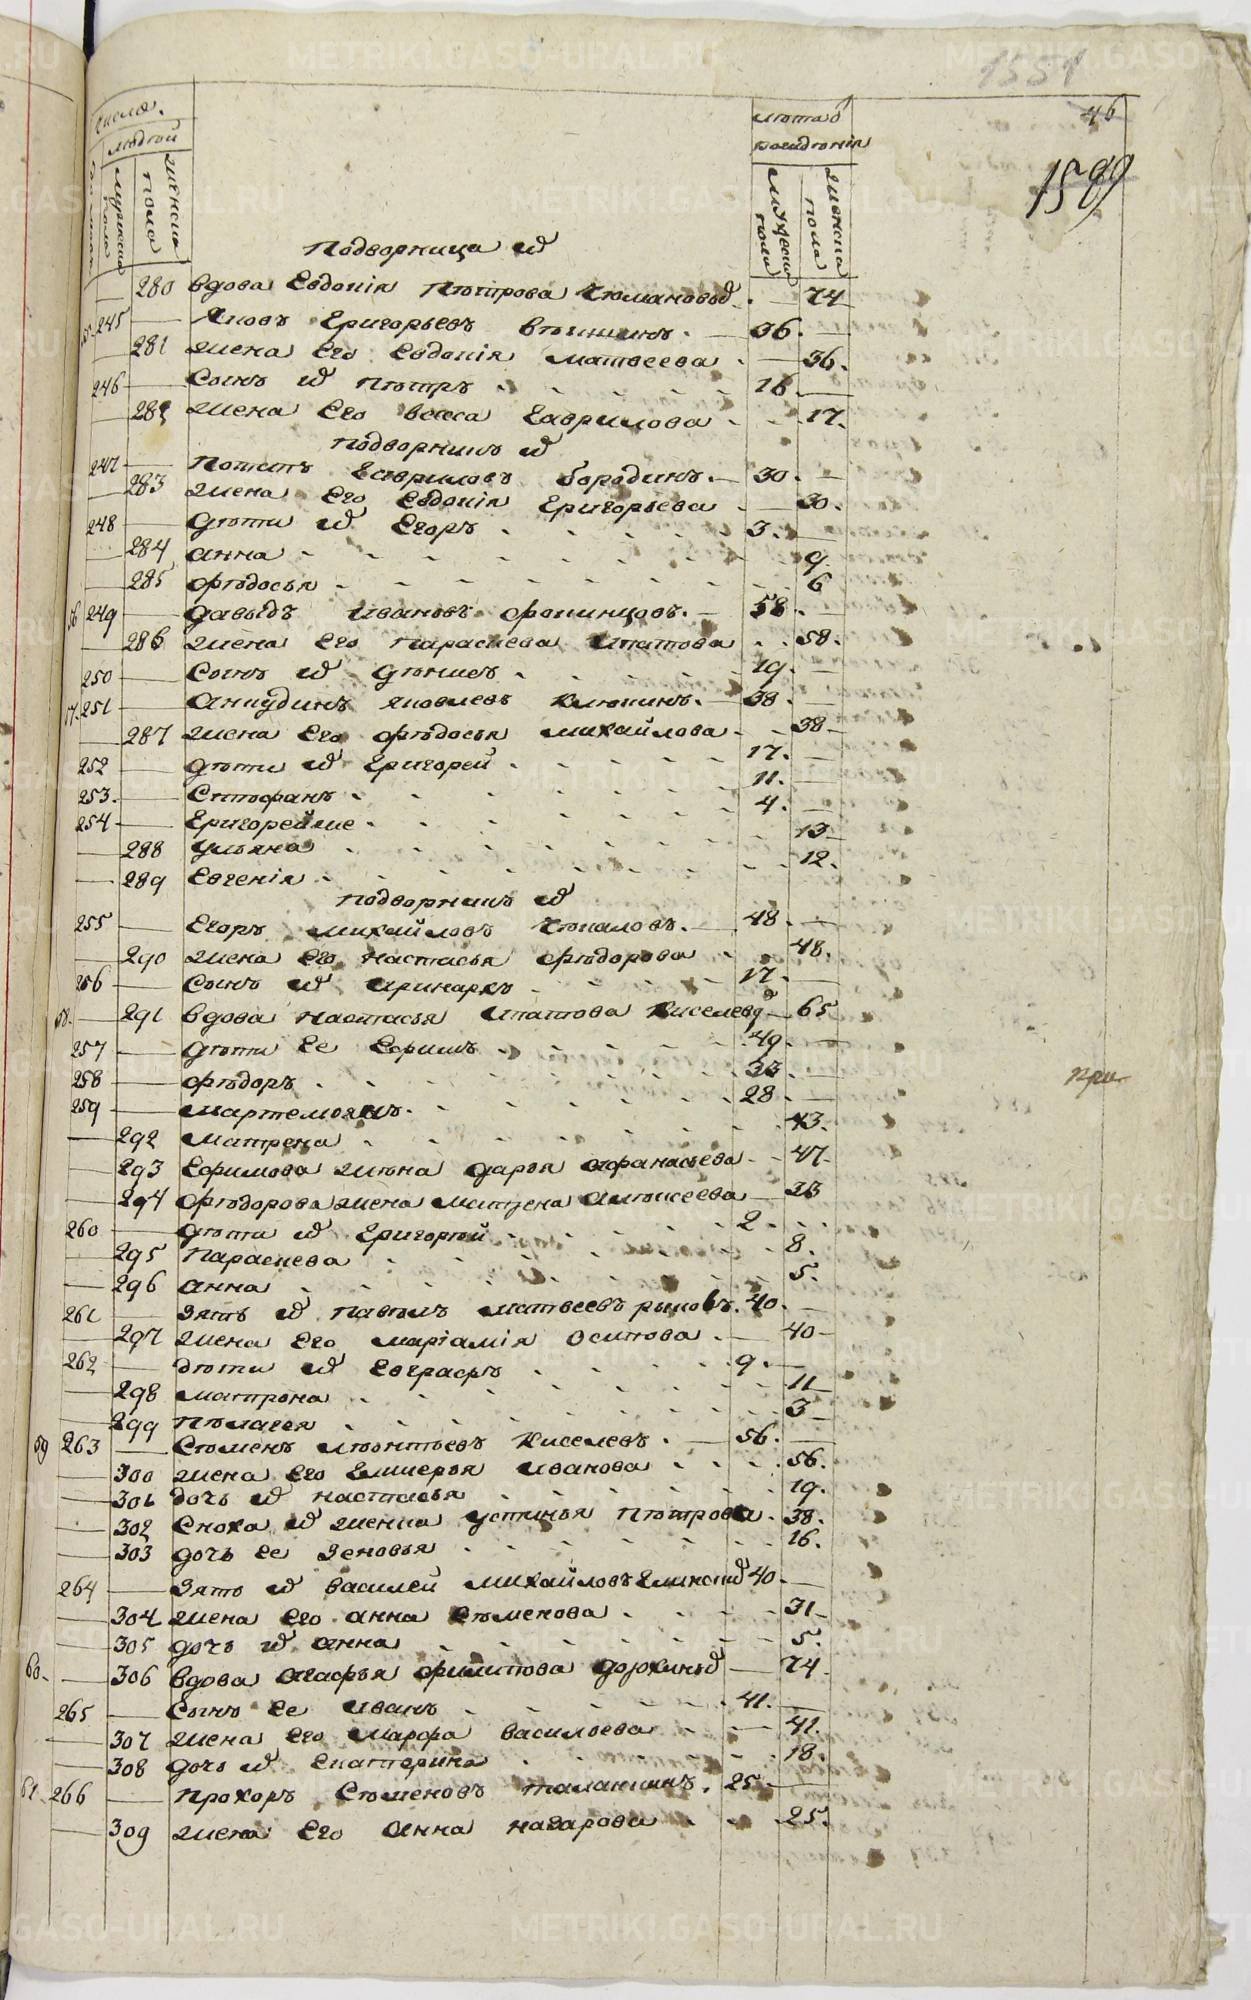 1551
46
1599
число.
людѣй
мужеска пола
женска пола
лѣта ѿ рождѣнія
мужеска пола
женска пола
Подворница иⷯ
280 вдова Евдокія Пѣтрова 74
55. 245 Яковъ Григорьевъ 36.
281 жена Его Евдокія матвеева 36.
246 Сынъ иⷯ пѣтръ 18
282 жена Его васса Гаврилова 17.
подворникъ иⷯ
247 потапъ Гавриловъ бородинъ 30.
283 жена Его Евдокія Григорьева 30.
248 дѣти иⷯ Егоръ 3.
284 анна 9.
285 фѣдосья 6
56 249 давыдъ ивановъ 58.
286 жена Его параскева ипатова 58.
250 Сынъ иⷯ дѣнисъ 19.
57. 251 Анкудинъ яковлевъ Клюкинъ 38.
287 жена Его фѣдосья михайлова 38
252 дѣти иⷯ Григорей 17.
253. Стѣфанъ 11.
254 Григорейже 4.
288 ульяна 13
289 Евгенія 12.
подворникъ иⷯ
255 Егоръ михайловъ 48.
290 жена Его настасья фѣдорова 48.
256 Сынъ иⷯ иринархъ 17.
58. 291 вдова настасья ипатова Киселева 65
257 дѣти Ее Ефимъ 49.
258 фѣдоръ 33
259 мартемьянъ 28
292 матрена 43.
293 Ефимова жѣна дарья афанасьева 47.
294 фѣдорова жена матрена алѣксеева 33
260 дѣти иⷯ Григорѣй 2
295 параскева 8.
296 анна 5.
261 Зять иⷯ павѣлъ матвеевъ рыковъ. 40.
297 жена Его маріамія осипова 40
262 дѣти иⷯ Евграфъ 9.
298 матрона 11
299 пѣлагея 3
59 263 Сѣменъ лѣонтьевъ Киселевъ 56.
300 жена Его Гликерья иванова 56.
301 дочь иⷯ настасья 19.
302 Сноха иⷯ женка устинья Пѣтрова 38.
303 дочь Ее Зеновья 16.
264 Зять иⷯ василей михайловъ 40
304 жена Его анна Сѣменова 31
305 дочь иⷯ анна 5.
60. 306 вдова агафья филипова 74
265 Сынъ Ее иванъ 41.
307 жена Его марфа васильева 41.
308 дочь иⷯ Екатерина 18.
61. 266 прохоръ Сѣменовъ таланкинъ. 25
309 жена Его анна назарова 25.
при
METRIKI.GASO-URAL.RU